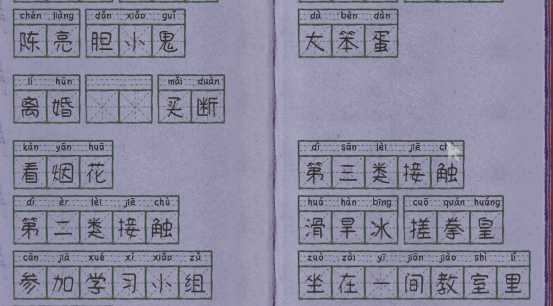 chén liàng dǎn xiǎo guǐ
陈亮 胆小鬼
lí hūn mǎi duàn
离婚 买断
kàn yān huā
看烟花
dì èr lèi jiē chù
第二类接触
cān jiā xué xí xiǎo zǔ
参加学习小组
dà bèn dàn
大笨蛋
dì sān lèi jiē
第三类接触
huá hàn bīng cuō quán huáng
滑旱冰 搓拳皇
zuò zài yī jiān jiào shì lǐ
坐在一间教室里